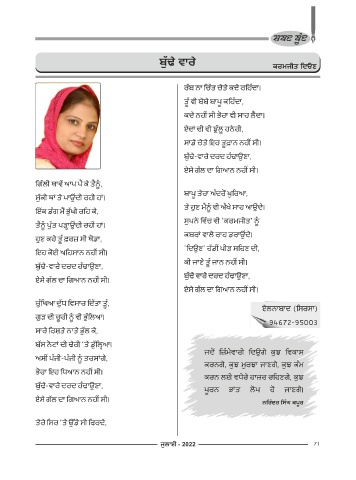 ਸ਼ਬਦ ਬੂੰਦ
ਬੁੱਢੇ ਵਾਰੇ
ਕਰਮਜੀਤ ਦਿਓਣ
ਗਿੱਲੀ ਥਾਵੇਂ ਆਪ ਪੈ ਕੇ ਤੈਨੂੰ,
ਸੁੱਕੀ ਥਾਂ ਤੇ ਪਾਉਂਦੀ ਰਹੀ ਹਾਂ।
ਇੱਕ ਡੰਗ ਮੈਂ ਭੁੱਖੀ ਰਹਿ ਕੇ,
ਤੈਨੂੰ ਪੁੱਤ ਪੜ੍ਹਾਉਂਦੀ ਰਹੀ ਹਾਂ।
ਹੁਣ ਕਰੇਂ ਤੂੰ ਫਰਜ਼ ਸੀ ਥੋਡਾ,
ਇਹ ਕੋਈ ਅਹਿਸਾਨ ਨਹੀਂ ਸੀ।
ਬੁੱਢੇ-ਵਾਰੇ ਦਰਦ ਹੰਢਾਉਣਾ,
ਏਸੇ ਗੱਲ ਦਾ ਗਿਆਨ ਨਹੀਂ ਸੀ।
ਚੁੰਘਿਆ ਦੁੱਧ ਵਿਸਾਰ ਦਿੱਤਾ ਤੂੰ,
ਗੁੜ ਦੀ ਚੂਰੀ ਨੂੰ ਵੀ ਭੁੱਲਿਆ।
ਸਾਰੇ ਰਿਸ਼ਤੇ ਨਾਤੇ ਭੁੱਲ ਕੇ,
ਬੱਸ ਨੋਟਾਂ ਦੀ ਢੇਰੀ 'ਤੇ ਡੁੱਲ੍ਹਿਆ।
ਅਸੀਂ ਪੰਜੀ-ਪੰਜੀ ਨੂੰ ਤਰਸਾਂਗੇ,
ਭੋਰਾ ਇਹ ਧਿਆਨ ਨਹੀਂ ਸੀ।
ਬੁੱਢੇ-ਵਾਰੇ ਦਰਦ ਹੰਢਾਉਣਾ,
ਏਸੇ ਗੱਲ ਦਾ ਗਿਆਨ ਨਹੀਂ ਸੀ।
ਤੇਰੇ ਸਿਰ 'ਤੇ ਉੱਡੇ ਸੀ ਫਿਰਦੇ,
ਰੱਬ ਨਾ ਚਿੱਤ ਚੇਤੇ ਕਦੇ ਰਹਿੰਦਾ।
ਤੂੰ ਵੀ ਬੇਬੇ ਬਾਪੂ ਕਹਿੰਦਾ,
ਕਦੇ ਨਹੀਂ ਸੀ ਭੋਰਾ ਵੀ ਸਾਹ ਲੈਂਦਾ।
ਏਦਾਂ ਦੀ ਵੀ ਝੁੱਲੂ ਹਨੇਰੀ,
ਸਾਡੇ ਚੇਤੇ ਇਹ ਤੂਫਾਨ ਨਹੀਂ ਸੀ।
ਬੁੱਢੇ-ਵਾਰੇ ਦਰਦ ਹੰਢਾਉਣਾ,
ਏਸੇ ਗੱਲ ਦਾ ਗਿਆਨ ਨਹੀਂ ਸੀ।
ਬਾਪੂ ਤੇਰਾ ਅੰਦਰੋਂ ਖੁਰਿਆ,
ਤੇ ਹੁਣ ਮੈਨੂੰ ਵੀ ਔਖੇ ਸਾਹ ਆਉਂਦੇ।
ਸੁਪਨੇ ਵਿੱਚ ਵੀ 'ਕਰਮਜੀਤ' ਨੂੰ
ਕਬਰਾਂ ਵਾਲੇ ਰਾਹ ਡਰਾਉਂਦੇ।
'ਦਿਉਣ' ਹੱਡੀਂ ਪੀੜ ਸਹਿਣ ਦੀ,
ਕੀ ਜਾਣੇ ਤੂੰ ਜਾਨ ਨਹੀਂ ਸੀ।
ਬੁੱਢੇ ਵਾਰੇ ਦਰਦ ਹੰਢਾਉਣਾ,
ਏਸੇ ਗੱਲ ਦਾ ਗਿਆਨ ਨਹੀਂ ਸੀ।
ਏਲਨਾਬਾਦ (ਸਿਰਸਾ)
94672-95003
ਜਦੋਂ ਜ਼ਿੰਮੇਵਾਰੀ ਦਿਉਗੇ ਕੁਝ ਵਿਕਾਸ
ਕਰਨਗੇ, ਕੁਝ ਮੁਰਝਾ ਜਾਣਗੇ, ਕੁਝ ਕੰਮ
ਕਰਨ ਲਈ ਵਧੇਰੇ ਹਾਜ਼ਰ ਰਹਿਣਗੇ, ਕੁਝ
ਪੂਰਨ ਭਾਂਤ ਲੋਪ ਹੋ ਜਾਣਗੇ।
ਨਰਿੰਦਰ ਸਿੰਘ ਕਪੂਰ
ਜੁਲਾਈ - 2022
71